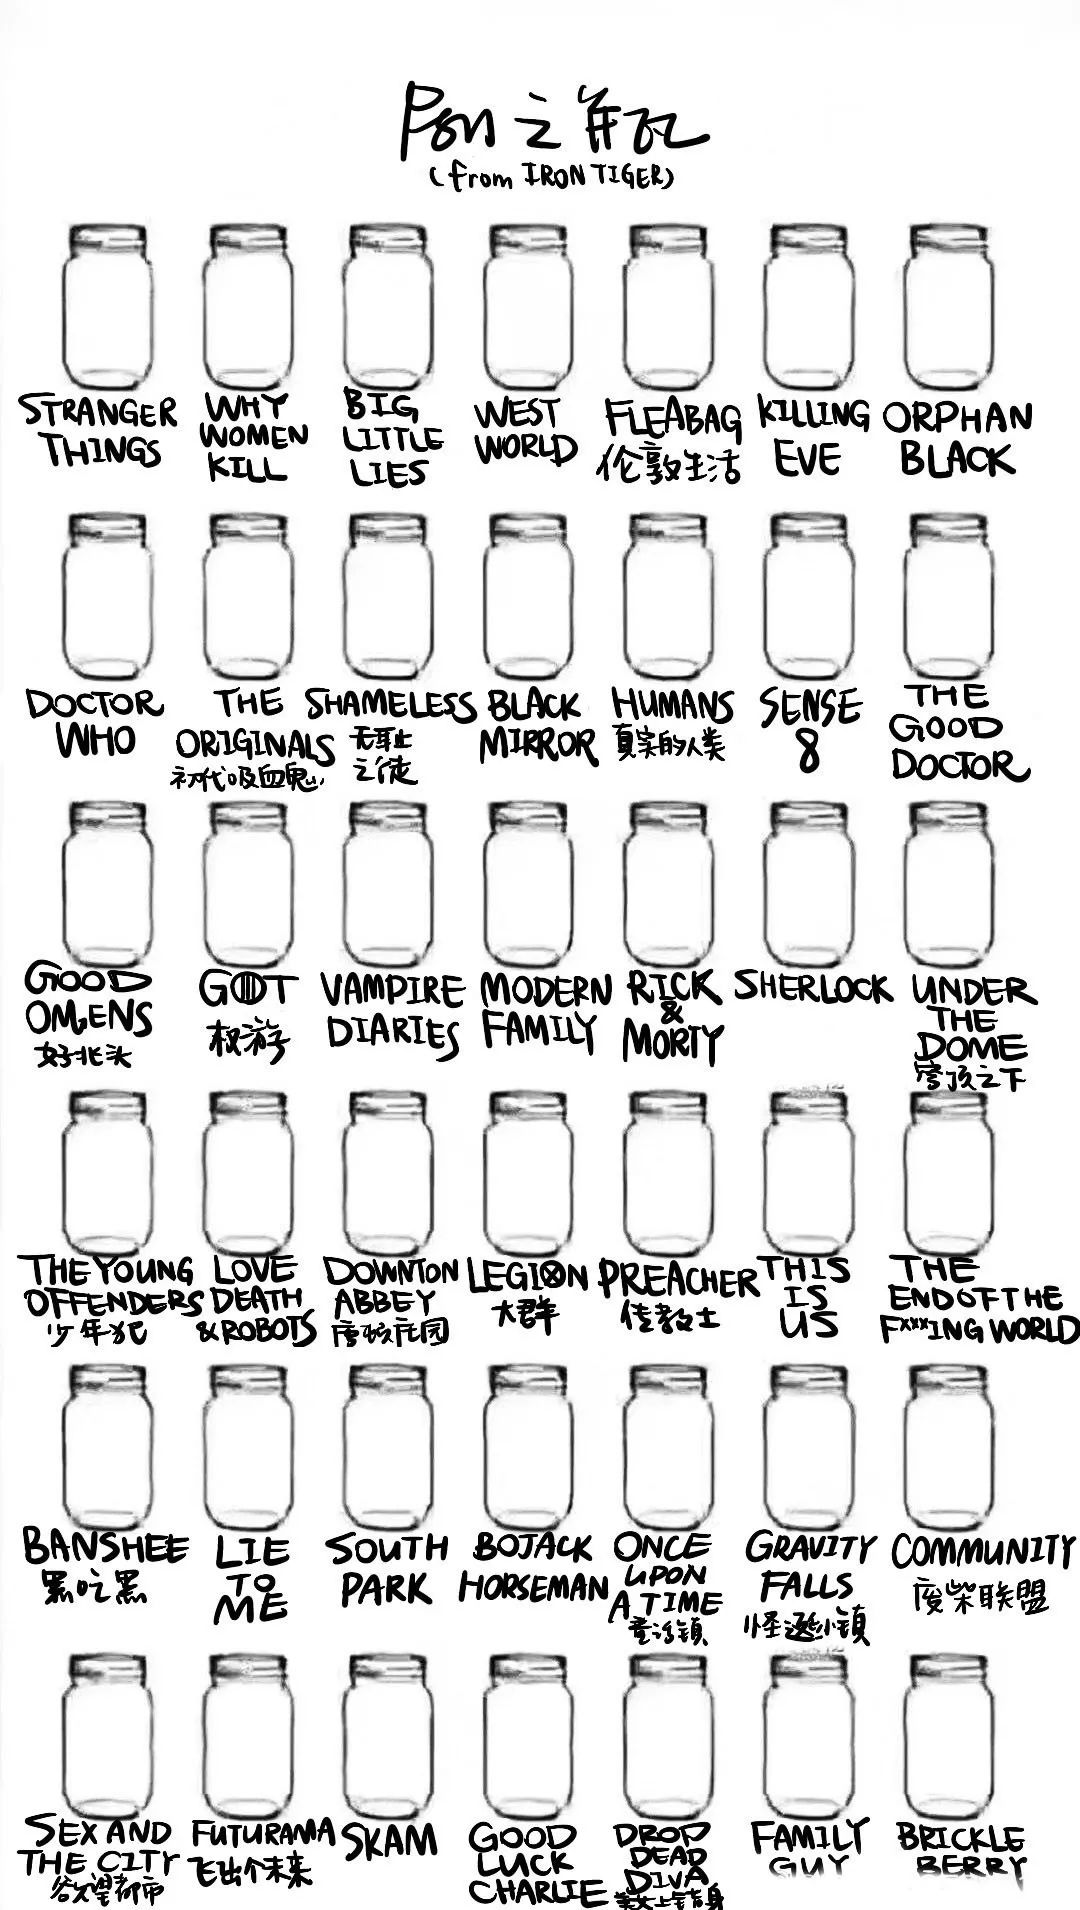 Pon之缸
(from IRON TIGER)
STRANGER
THINGS
WHY
WOMEN
KILL
BIG
LITTLE
LIES
WEST
WORLD
FLEABAG
伦敦生活
KILLING
EVE
ORPHAN
BLACK
DOCTOR
WHO
THE
ORIGINALS
初代吸血鬼
SHAMELESS
无耻
之徒
BLACK
MIRROR
HUMANS
真实的人类
SENSE
8
THE
GOOD
DOCTOR
GOOD
OMENS
好兆头
GOT
权游
VAMPIRE
DIARIES
MODERN
FAMILY
RICK
&
MORTY
SHERLOCK
UNDER
THE
DOME
穹顶之下
THE YOUNG
OFFENDERS
少年犯
LOVE
DEATH
&ROBOTS
DOWNTON
ABBEY
唐顿庄园
LEGION
大群
PREACHER
传教士
THIS
IS
US
THE
END OF THE
F***ING WORLD
BANSHEE
黑吃黑
LIE
TO
ME
SOUTH
PARK
BOJACK
HORSEMAN
ONCE
UPON
A TIME
童话镇
GRAVITY
FALLS
怪诞小镇
COMMUNITY
废柴联盟
SEX AND
THE CITY
欲望都市
FUTURAMA
飞出个未来
SKAM
GOOD
LUCK
CHARLIE
DROP
DEAD
DIVA
美女上错身
FAMILY
GUY
BRICKLE
BERRY